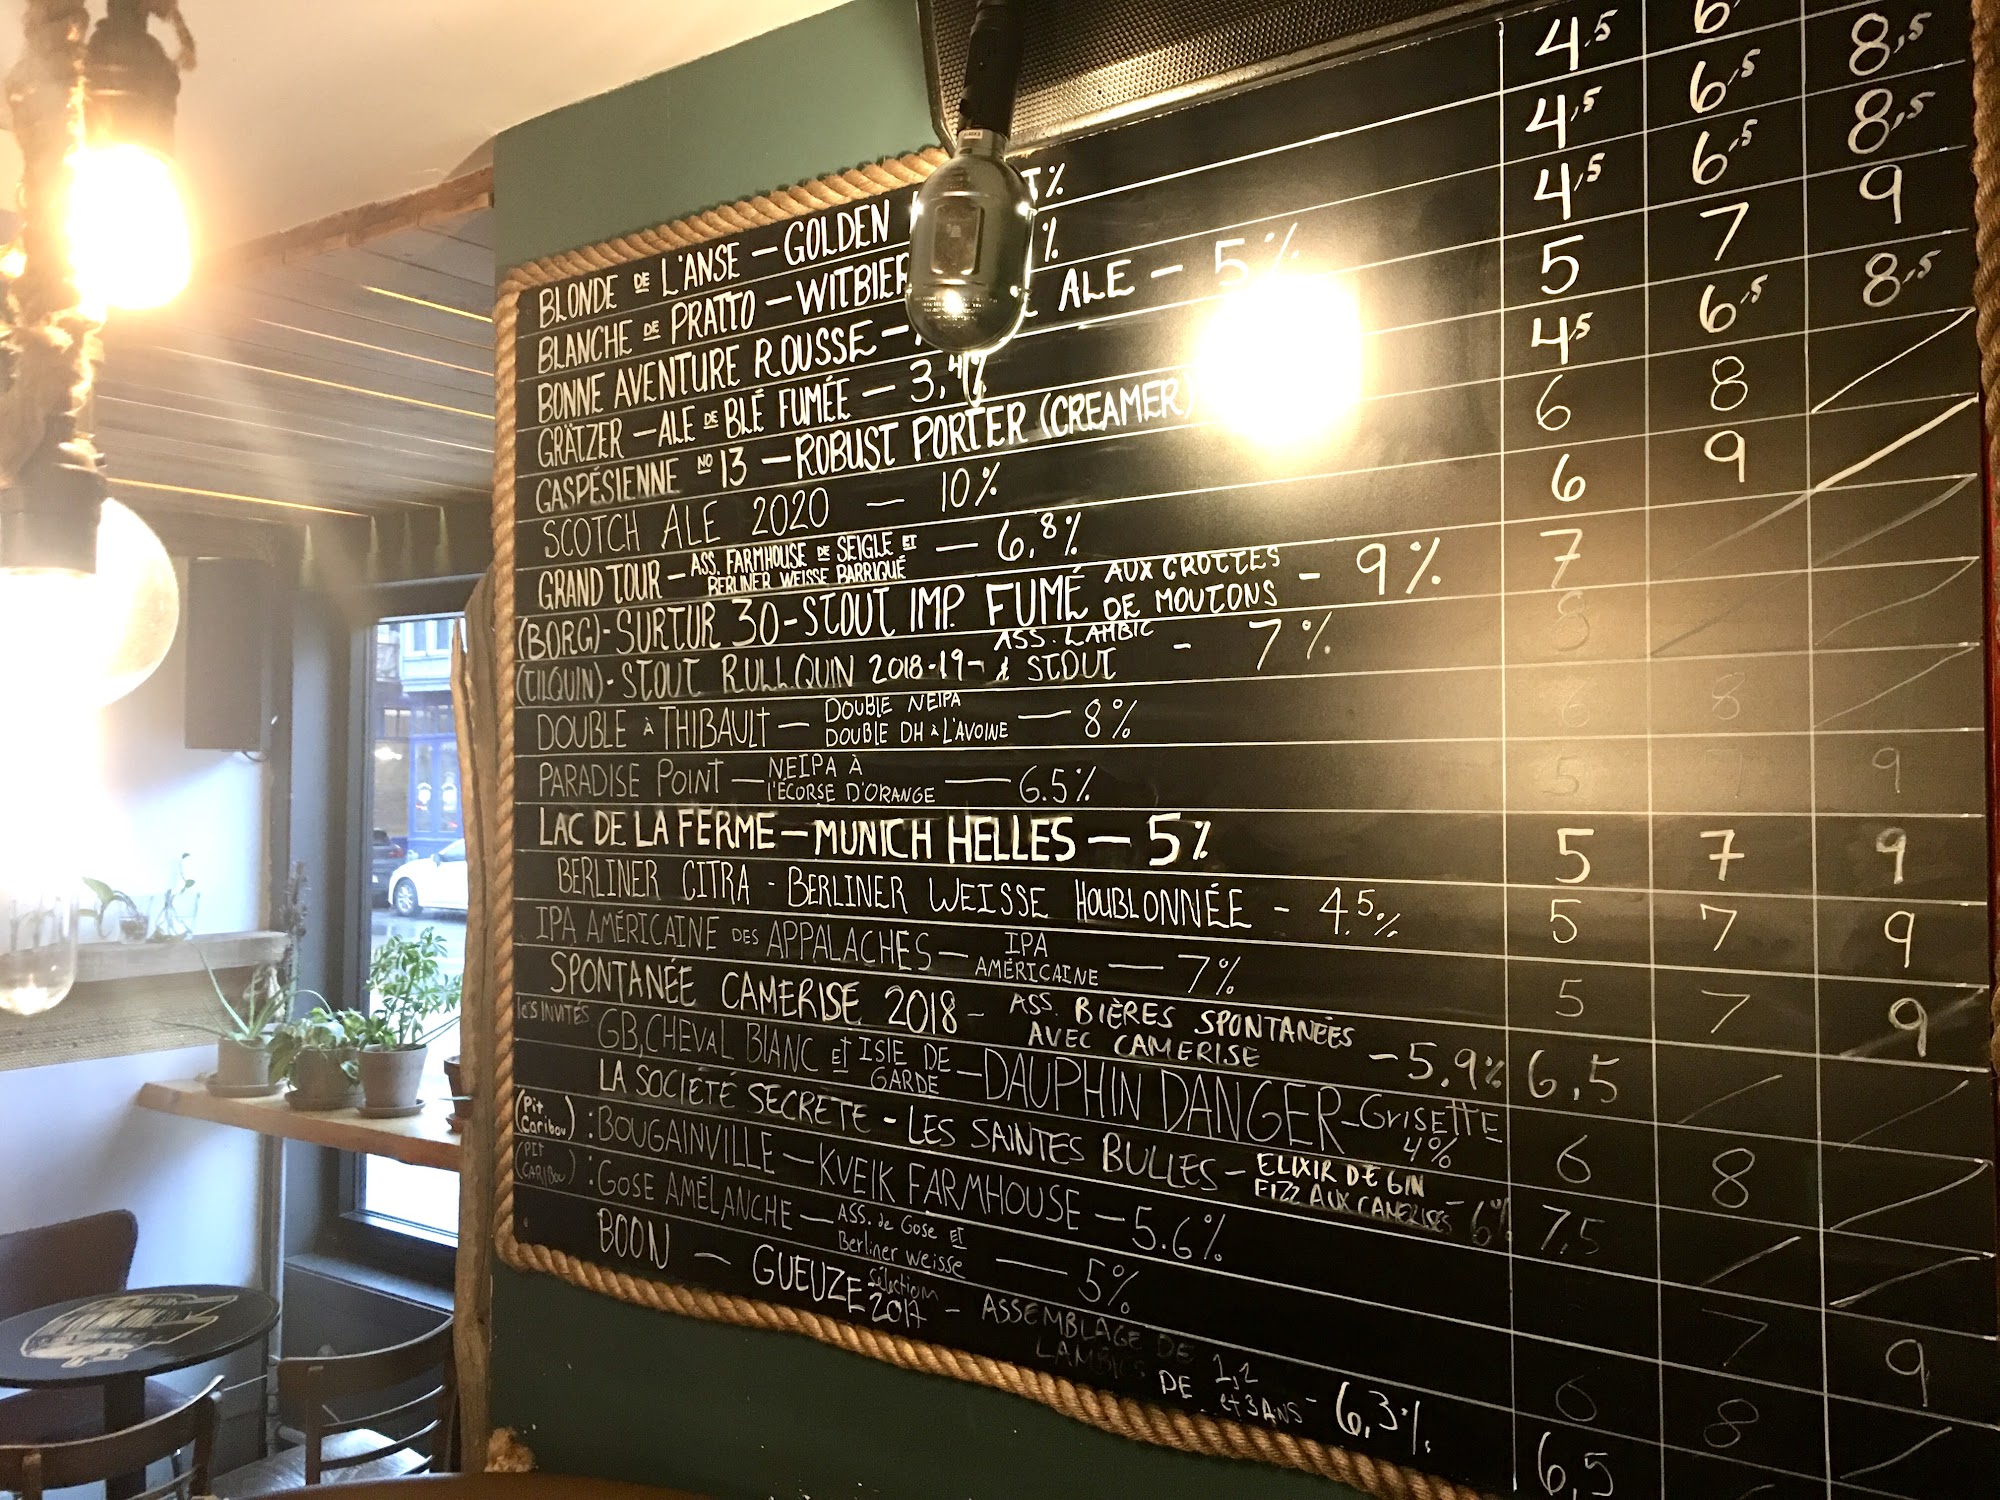 4.5 6
BLONDE DE L'ANSE — GOLDEN % 4,5 6,5 8,5
BLANCHE DE PRATTO — WITBIER % 4,5 6,5 8,5
BONNE AVENTURE ROUSSE — ALE — 5% 5 7 9
GRÄTZER — ALE DE BLÉ FUMÉE — 3,4% 4,5 6,5 8,5
GASPÉSIENNE NO 13 — ROBUST PORTER (CREAMER) 6 8
SCOTCH ALE 2020 — 10% 6 9
GRAND TOUR — ASS. FARMHOUSE DE SEIGLE ET
BERLINER WEISSE BARRIQUÉ — 6,8% 7
(BORG) - SURTUR 30 - STOUT IMP. FUMÉ AUX CROTTES
DE MOUTONS - 9% 8
(TILQUIN) - STOUT RULLQUIN 2018-19 - ASS. LAMBIC
& STOUT - 7%
DOUBLE À THIBAULT — DOUBLE NEIPA
DOUBLE DH À L'AVOINE — 8% 6 8
PARADISE POINT — NEIPA À
L'ÉCORSE D'ORANGE — 6.5% 5 7 9
LAC DE LA FERME — MUNICH HELLES — 5% 5 7 9
BERLINER CITRA - BERLINER WEISSE HOUBLONNÉE - 4.5% 5 7 9
IPA AMÉRICAINE DES APPALACHES — IPA
AMÉRICAINE — 7% 5 7 9
SPONTANÉE CAMERISE 2018 - ASS. BIÈRES SPONTANÉES
AVEC CAMERISE - 5.9% 6,5
les INVITÉS
GB, CHEVAL BLANC ET ISLE DE
GARDE — DAUPHIN DANGER - GRISETTE
4% 6 8
LA SOCIÉTÉ SECRÈTE - LES SAINTES BULLES - ELIXIR DE GIN
FIZZ AUX CAMERISES - 6% 7,5
(Pit Caribou) : BOUGAINVILLE — KVEIK FARMHOUSE — 5.6% 7 9
(PIT CARIBOU) : GOSE AMÉLANCHE — ASS. de GOSE ET
Berliner weisse — 5% 6 8
BOON — GUEUZE Sélection
2017 - ASSEMBLAGE DE
LAMBICS DE 1,2
et 3 ANS - 6,3% 6,5